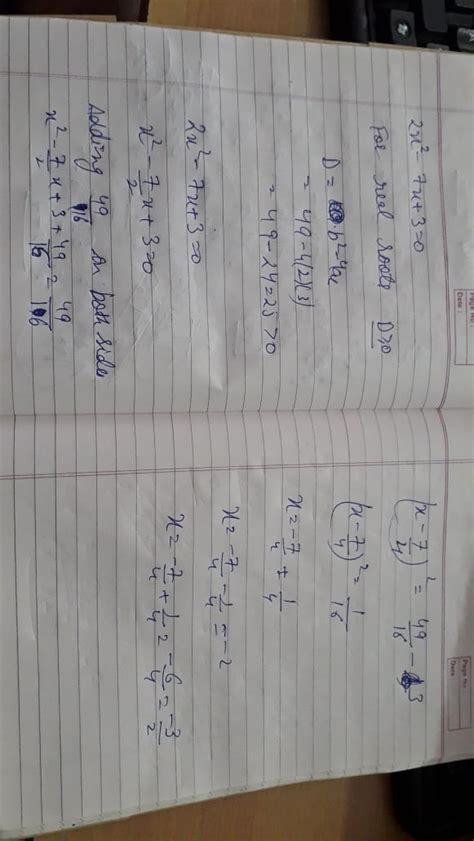 Page No.
Date :
2x² - 7x + 3 = 0
For real roots D≥0
D = b² - 4ac
= 49 - 4(2)(3)
= 49 - 24 = 25 > 0
2x² - 7x + 3 = 0
x² - 7/2 x + 3 = 0
Adding 49/16 on both sides
x² - 7/2 x + 3 + 49/16 = 49/16
Page No.
Date
(x - 7/4)² = 49/16 - 3
(x - 7/4)² = 1/16
x = -7/4 + 1/4
x = -7/4 - 1/4 = -2
x = -7/4 + 1/4 = -6/4 = -3/2